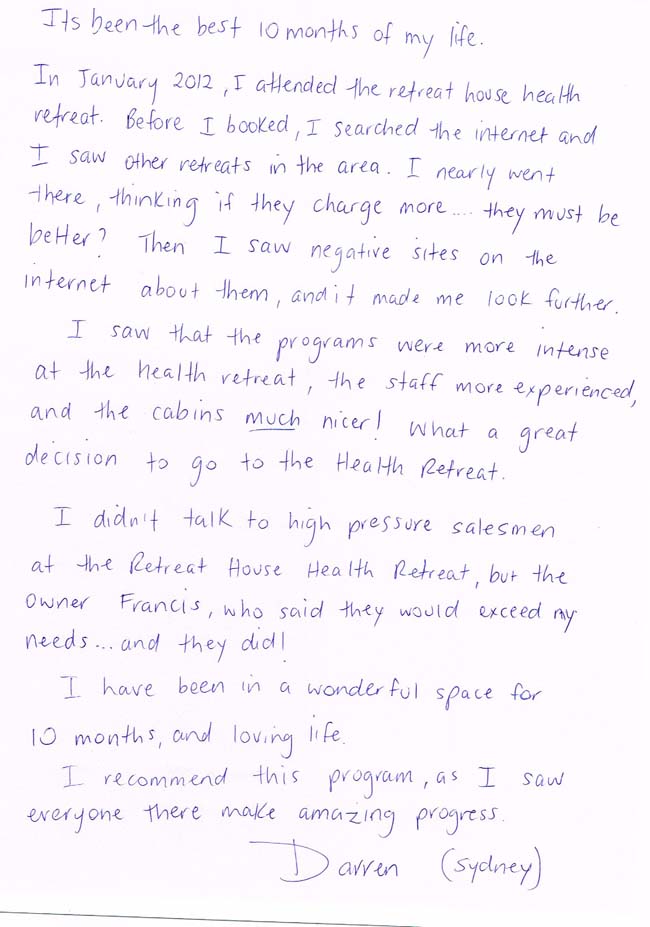 Its been the best 10 months of my life.
In January 2012, I attended the retreat house health
retreat. Before I booked, I searched the internet and
I saw other retreats in the area. I nearly went
there, thinking if they charge more.... they must be
better? Then I saw negative sites on the
internet about them, and it made me look further.
I saw that the programs were more intense
at the health retreat, the staff more experienced,
and the cabins much nicer! What a great
decision to go to the Health Retreat.
I didn't talk to high pressure salesmen
at the Retreat House Health Retreat, but the
owner Francis, who said they would exceed my
needs... and they did!
I have been in a wonderful space for
10 months, and loving life.
I recommend this program, as I saw
everyone there make amazing progress.
Darren (Sydney)